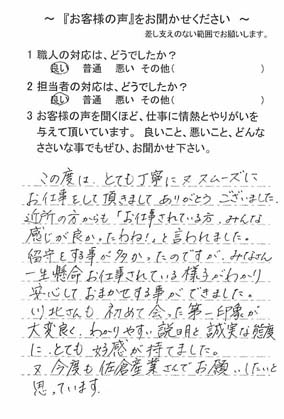 ～ 『お客様の声』をお聞かせください ～
差し支えのない範囲でお願いします。
1 職人の対応は、どうでしたか？
良い 普通 悪い その他( )
2 担当者の対応は、どうでしたか？
良い 普通 悪い その他( )
3 お客様の声を聞くほど、仕事に情熱とやりがいを
与えて頂いています。 良いこと、悪いこと、どんな
ささいな事でもぜひ、お聞かせ下さい。
この度は、とても丁寧に又スムーズに
お仕事をして頂きましてありがとうございました。
近所の方からも「お仕事されている方、みんな
感じが良かったわね!」と言われました。
留守をする事が多かったのですが、みなさん
一生懸命お仕事されている様子がわかり
安心しておまかせする事ができました。
川北さんも初めて会った第一印象が
大変良く、わかりやすい説明と誠実な態度
に、とても好感が持てました。
又、今度も佐倉産業さんでお願いしたいと
思っています。